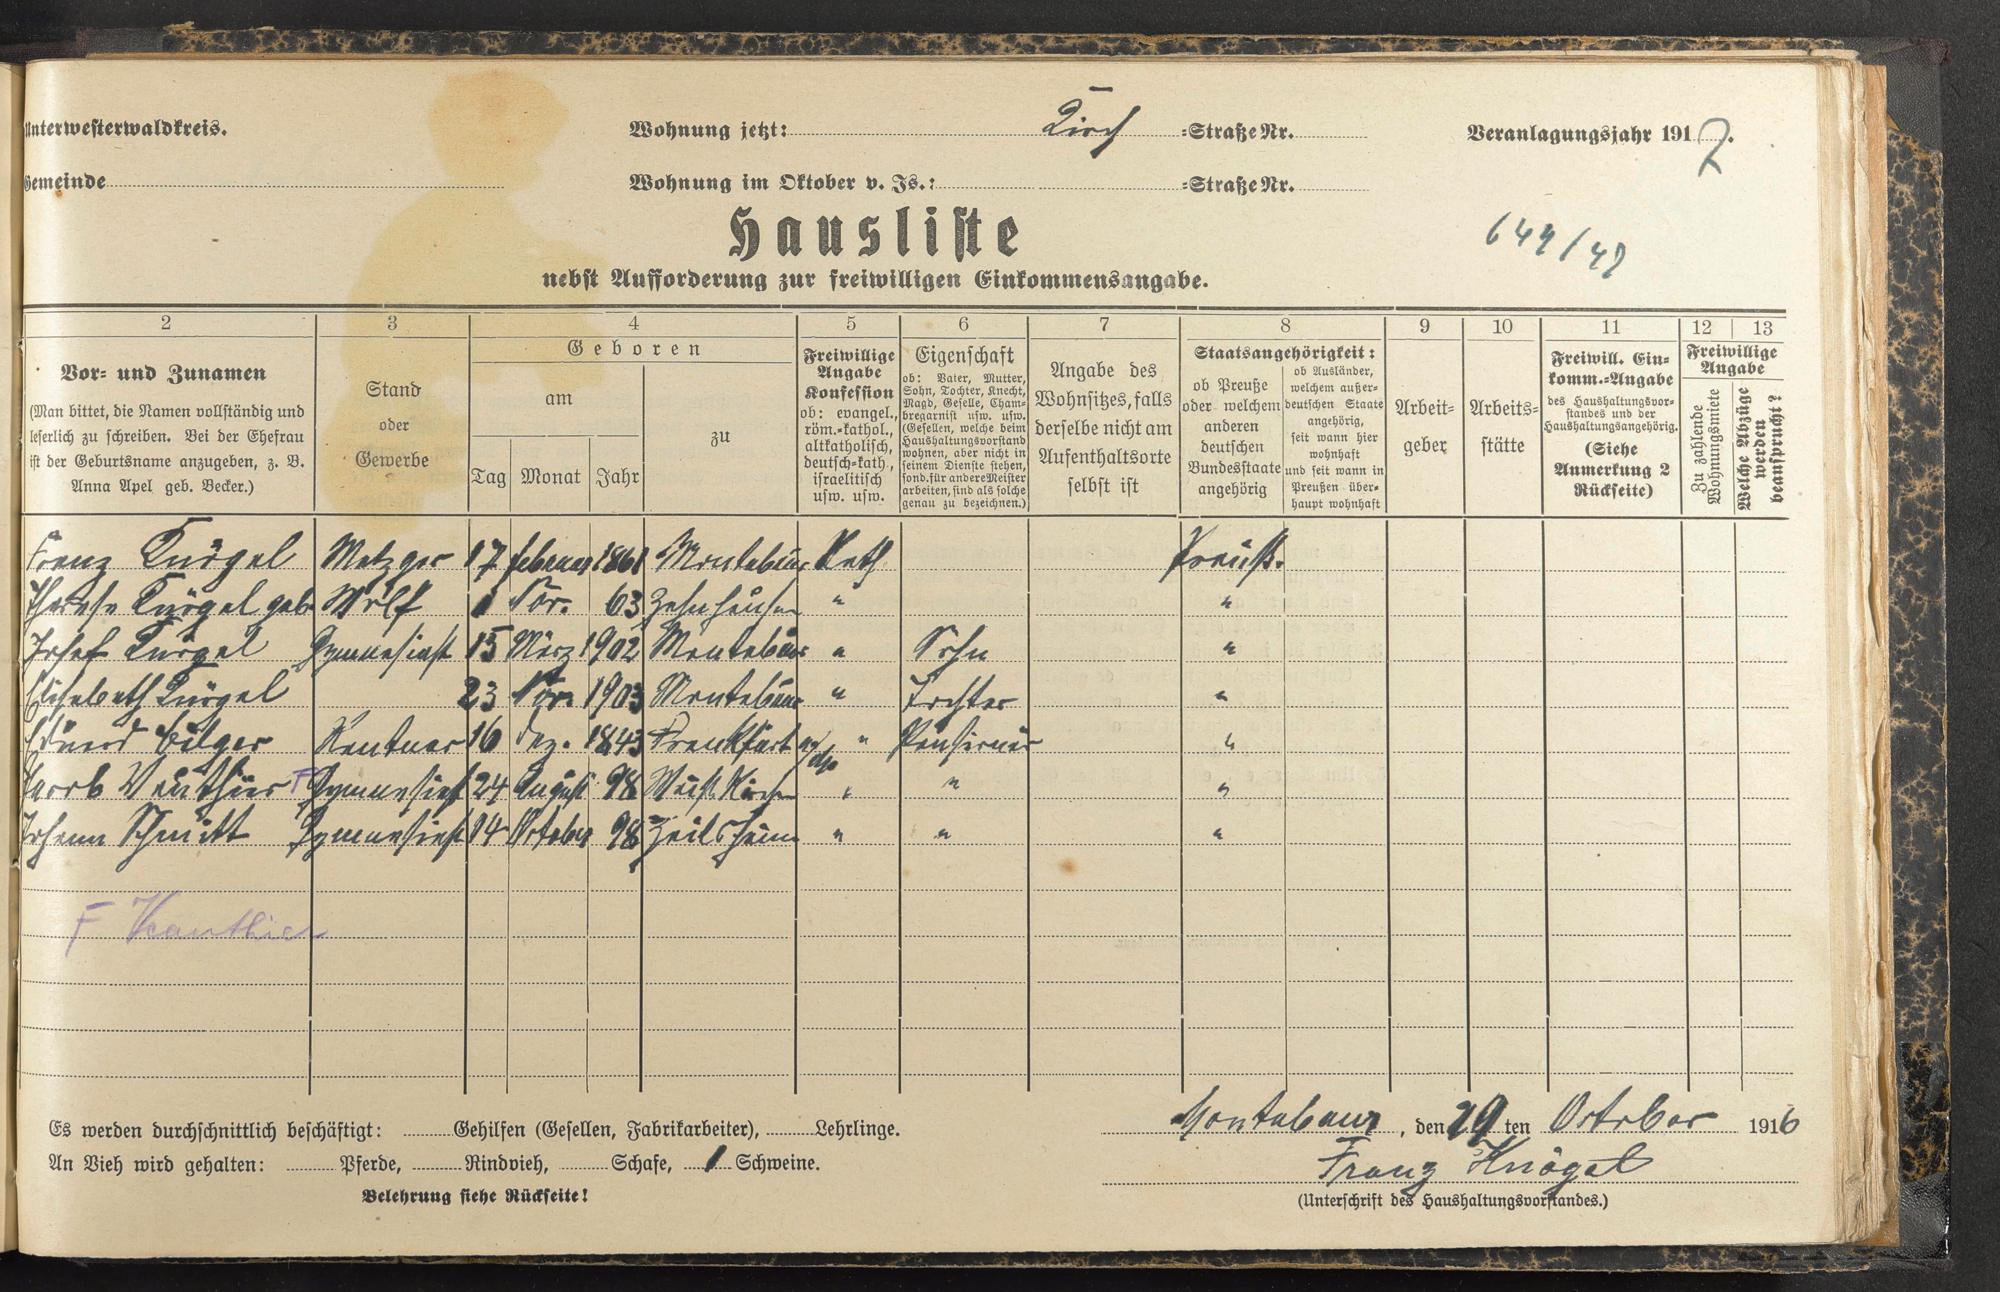 Unterwesterwaldkreis.
Wohnung jetzt: Kirch =Straße Nr.
Veranlagungsjahr 1917.
Gemeinde
Wohnung im Oktober v. Js.: =Straße Nr.
Hausliste
644/42
nebst Aufforderung zur freiwilligen Einkommensangabe.
2 3 4 5 6 7 8 9 10 11 12 13
Vor- und Zunamen
(Man bittet, die Namen vollständig und
leserlich zu schreiben. Bei der Ehefrau
ist der Geburtsname anzugeben, z. B.
Anna Apel geb. Becker.)
Stand
oder
Gewerbe
Geboren
am
Tag Monat Jahr
zu
Freiwillige
Angabe
Konfession
ob: evangel.,
röm.-kathol.,
altkatholisch,
deutsch-kath.,
israelitisch
usw. usw.
Eigenschaft
ob: Vater, Mutter,
Sohn, Tochter, Knecht,
Magd, Geselle, Cham-
bregarnist usw. usw.
(Gesellen, welche beim
Haushaltungsvorstand
wohnen, aber nicht in
seinem Dienste stehen,
sond. für andere Meister
arbeiten, sind als solche
genau zu bezeichnen.)
Angabe des
Wohnsitzes, falls
derselbe nicht am
Aufenthaltsorte
selbst ist
Staatsangehörigkeit:
ob Preuße
oder welchem
anderen
deutschen
Bundesstaate
angehörig
ob Ausländer,
welchem außer-
deutschen Staate
angehörig,
seit wann hier
wohnhaft
und seit wann in
Preußen über-
haupt wohnhaft
Arbeit-
geber
Arbeits-
stätte
Freiwill. Ein-
komm.-Angabe
des Haushaltungsvor-
standes und der
Haushaltungsangehörig.
(Siehe
Anmerkung 2
Rückseite)
Freiwillige
Angabe
Zu zahlende
Wohnungsmiete
Welche Abzüge
werden
beansprucht?
Franz Knögel Metzger 17 Februar 1861 Montabaur Kath. Preuß.
Therese Knögel geb. Wolf 1 Nov. 63 Zehnhausen " "
Josef Knögel Gymnasiast 15 März 1902 Montabaur " Sohn "
Elisabeth Knögel 23 Nov. 1903 Montabaur " Tochter "
Eduard Bilger Rentner 16 Dez. 1843 Frankfurt " Pensionär "
Jacob Wauthier F Gymnasiast 24 August 98 " " "
Johann Schmitt Gymnasiast 14 October 98 Zeilsheim " " "
F Wauthier
Es werden durchschnittlich beschäftigt: Gehilfen (Gesellen, Fabrikarbeiter), Lehrlinge.
Montabaur, den 29 ten October 1916
An Vieh wird gehalten: Pferde, Rindvieh, Schafe, 1 Schweine.
Franz Knögel
Belehrung siehe Rückseite!
(Unterschrift des Haushaltungsvorstandes.)